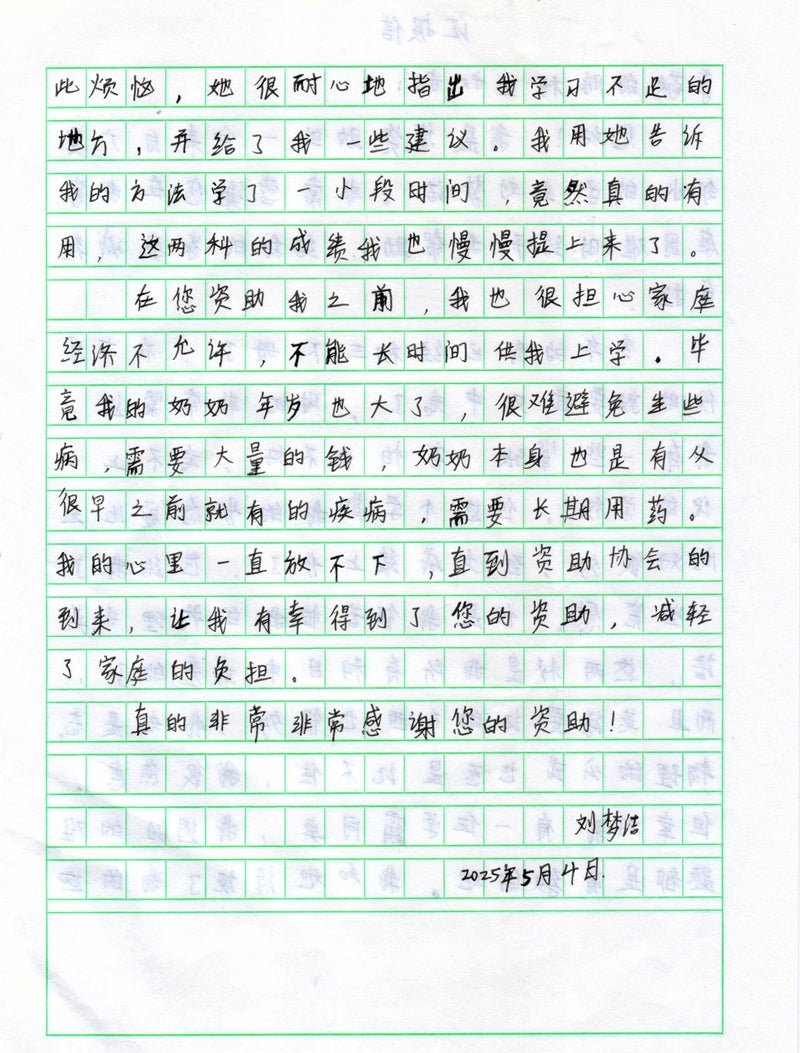 此烦恼，她很耐心地指出我学习不足的
地方，并给了我一些建议。我用她告诉
我的方法学了一小段时间，竟然真的有
用，这两科的成绩我也慢慢提上来了。
在您资助我之前，我也很担心家庭
经济不允许，不能长时间供我上学。毕
竟我的奶奶年岁也大了，很难避免生些
病，需要大量的钱，奶奶本身也是有从
很早之前就有的疾病，需要长期用药。
我的心里一直放不下，直到资助协会的
到来，让我有幸得到了您的资助，减轻
了家庭的负担。
真的非常非常感谢您的资助！
刘梦洁
2025年5月4日.